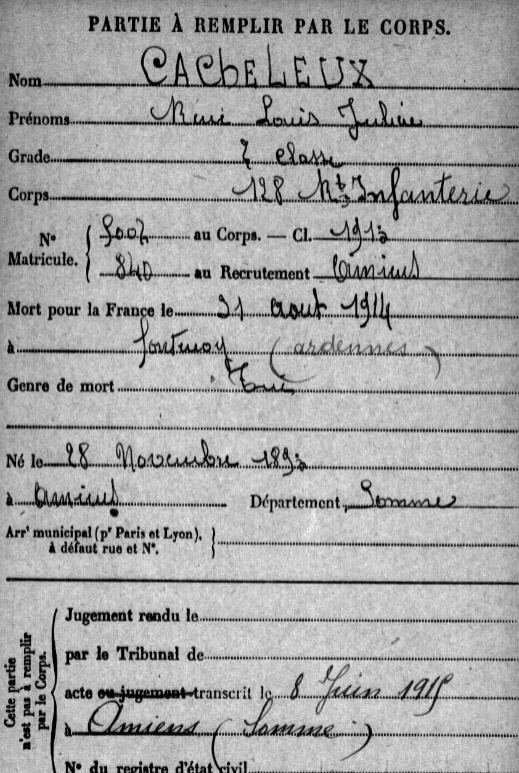 PARTIE À REMPLIR PAR LE CORPS.
Nom CACHELEUX
Prénoms René Louis Julien
Grade 2 classe
Corps 128 Rt Infanterie
N° Matricule. 5002 au Corps. — Cl. 1913
840 au Recrutement Amiens
Mort pour la France le 31 aout 1914
à Fontenoy (ardennes)
Genre de mort Tué
Né le 28 Novembre 1893
à Amiens Département Somme
Arrt municipal (pr Paris et Lyon),
à défaut rue et N°.
Cette partie
n'est pas à remplir
par le Corps.
Jugement rendu le
par le Tribunal de
acte ou jugement transcrit le 8 Juin 1915
à Amiens (Somme)
N° du registre d'état civil